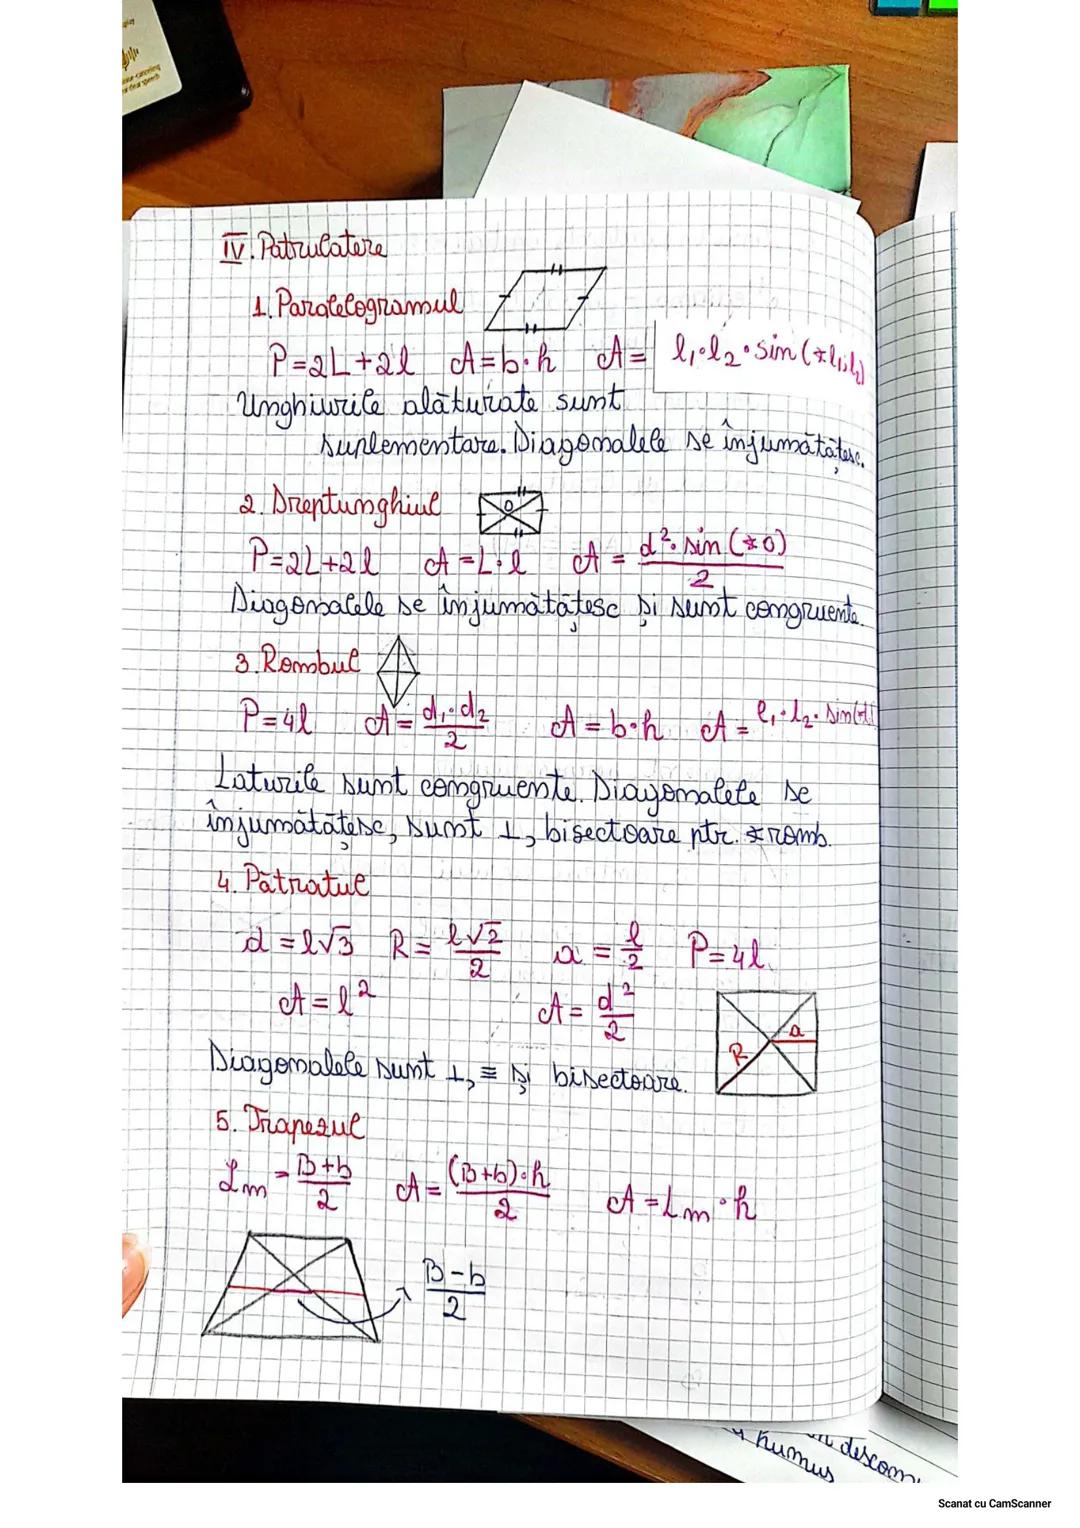 IV. Patrulatere
1. Paralelogramul
P=2L+2l A=b·h A= l₁·l₂·sin(∢l₁,l₂)
Unghiurile alăturate sunt
suplementare. Diagonalele se înjumătățesc.
2. Dreptunghiul
O
P=2L+2l A=L·l A = d²·sin(∢O)/2
Diagonalele se înjumătățesc și sunt congruente.
3. Rombul
P=4l A = d₁·d₂/2 A=b·h A = l₁·l₂·sin(∢
Laturile sunt congruente. Diagonalele se
înjumătățesc, sunt ⊥, bisectoare ptr. ∢romb.
4. Pătratul
d = l√3 R = l√2/2 a = l/2 P=4l
A = l² A = d²/2
R a
Diagonalele sunt ⊥, ≡ și bisectoare.
5. Trapezul
Lm = B+b/2 A = (B+b)·h/2 A = Lm·h
B-b/2
descom
humus
Scanat cu CamScanner